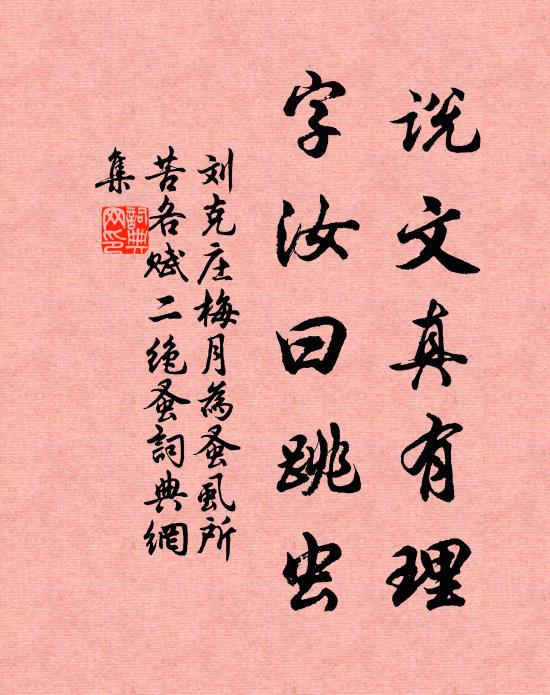 说文真有理
字汝曰跳虫
刘克庄梅月为蚤虱所
苦各赋二绝蚤詞典網
集
詞典网印